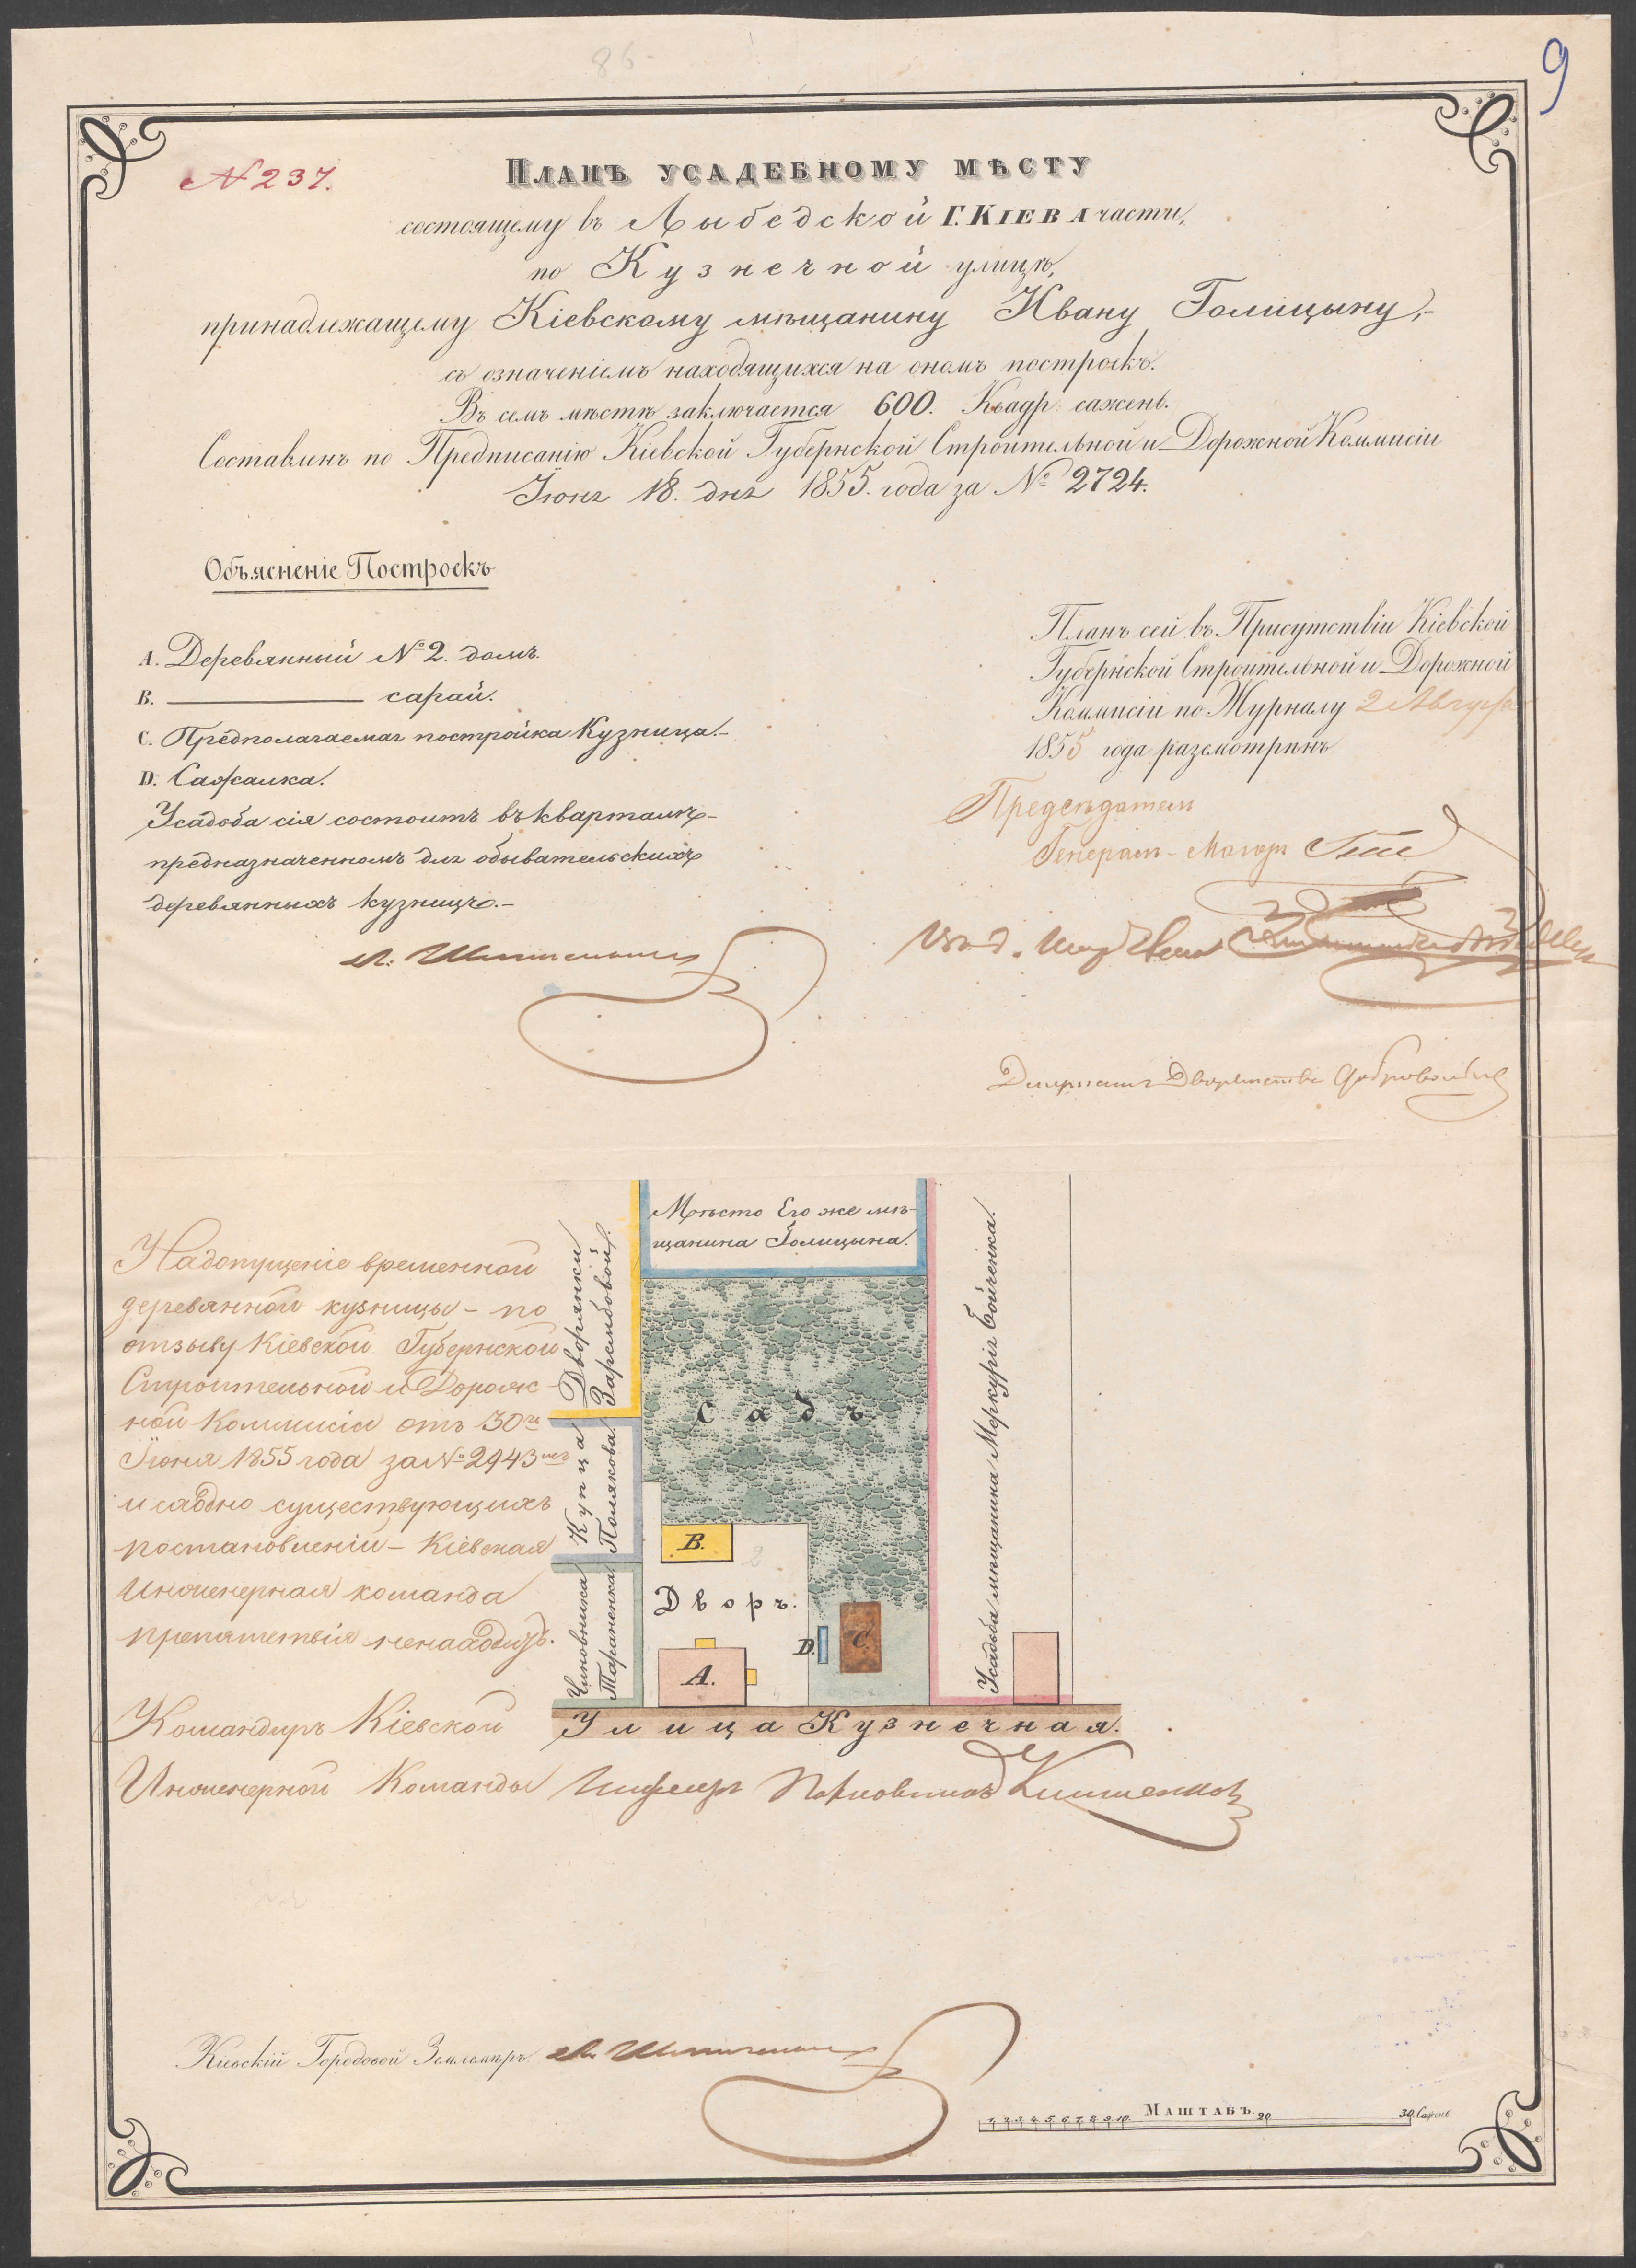 9
86
№ 237.
Планъ усадебному мѣсту
состоящему въ Лыбедской г. Кіева части,
по Кузнечной улицѣ,
принадлежащему Кіевскому мѣщанину Ивану Голицыну,-
съ означеніемъ находящихся на ономъ построекъ.
Въ семъ мѣстѣ заключается 600. Квадр: сажень.
Составленъ по Предписанію Кіевской Губернской Строительной и Дорожной Коммисіи
Іюня 18. дня 1855. года за № 2724.
Объясненіе Построекъ
A. Деревянный № 2. домъ.
B. ——— сарай.
C. Предполагаемая постройка Кузница.-
D. Сажалка.
Усадьба сія состоитъ въ кварталѣ-
предназначенномъ для обывательскихъ
деревянныхъ кузницъ.-
Планъ сей въ Присутствіи Кіевской
Губернской Строительной и Дорожной
Коммисіи по Журналу 2 Августа
1855 года разсмотрѣнъ
Предсѣдатель
Генералъ-Маіоръ
Дворянства
Мѣсто Его же мѣ-
щанина Голицына.
Дворянки
Зарембовой.
Купца
Полякова
Чиновника
Тараненка
Садъ
B.
2
Дворъ.
D.
C.
A.
Усадьба мѣщанина Меркурія Бойченка.
Улица Кузнечная.
На допущеніе временной
деревянной кузницы - по
отзыву Кіевской Губернской
Строительной и Дорож-
ной Коммисіи отъ 30го
Іюня 1855 года за № 2943мъ
и сообразно существующихъ
постановленій - Кіевская
Инженерная команда
препятствія не находитъ.
Командиръ Кіевской
Инженерной Команды Инженеръ Полковникъ
Кіевскій Городовой Землемѣръ
Масштабъ
1 2 3 4 5 6 7 8 9 10 20 30 Сажень